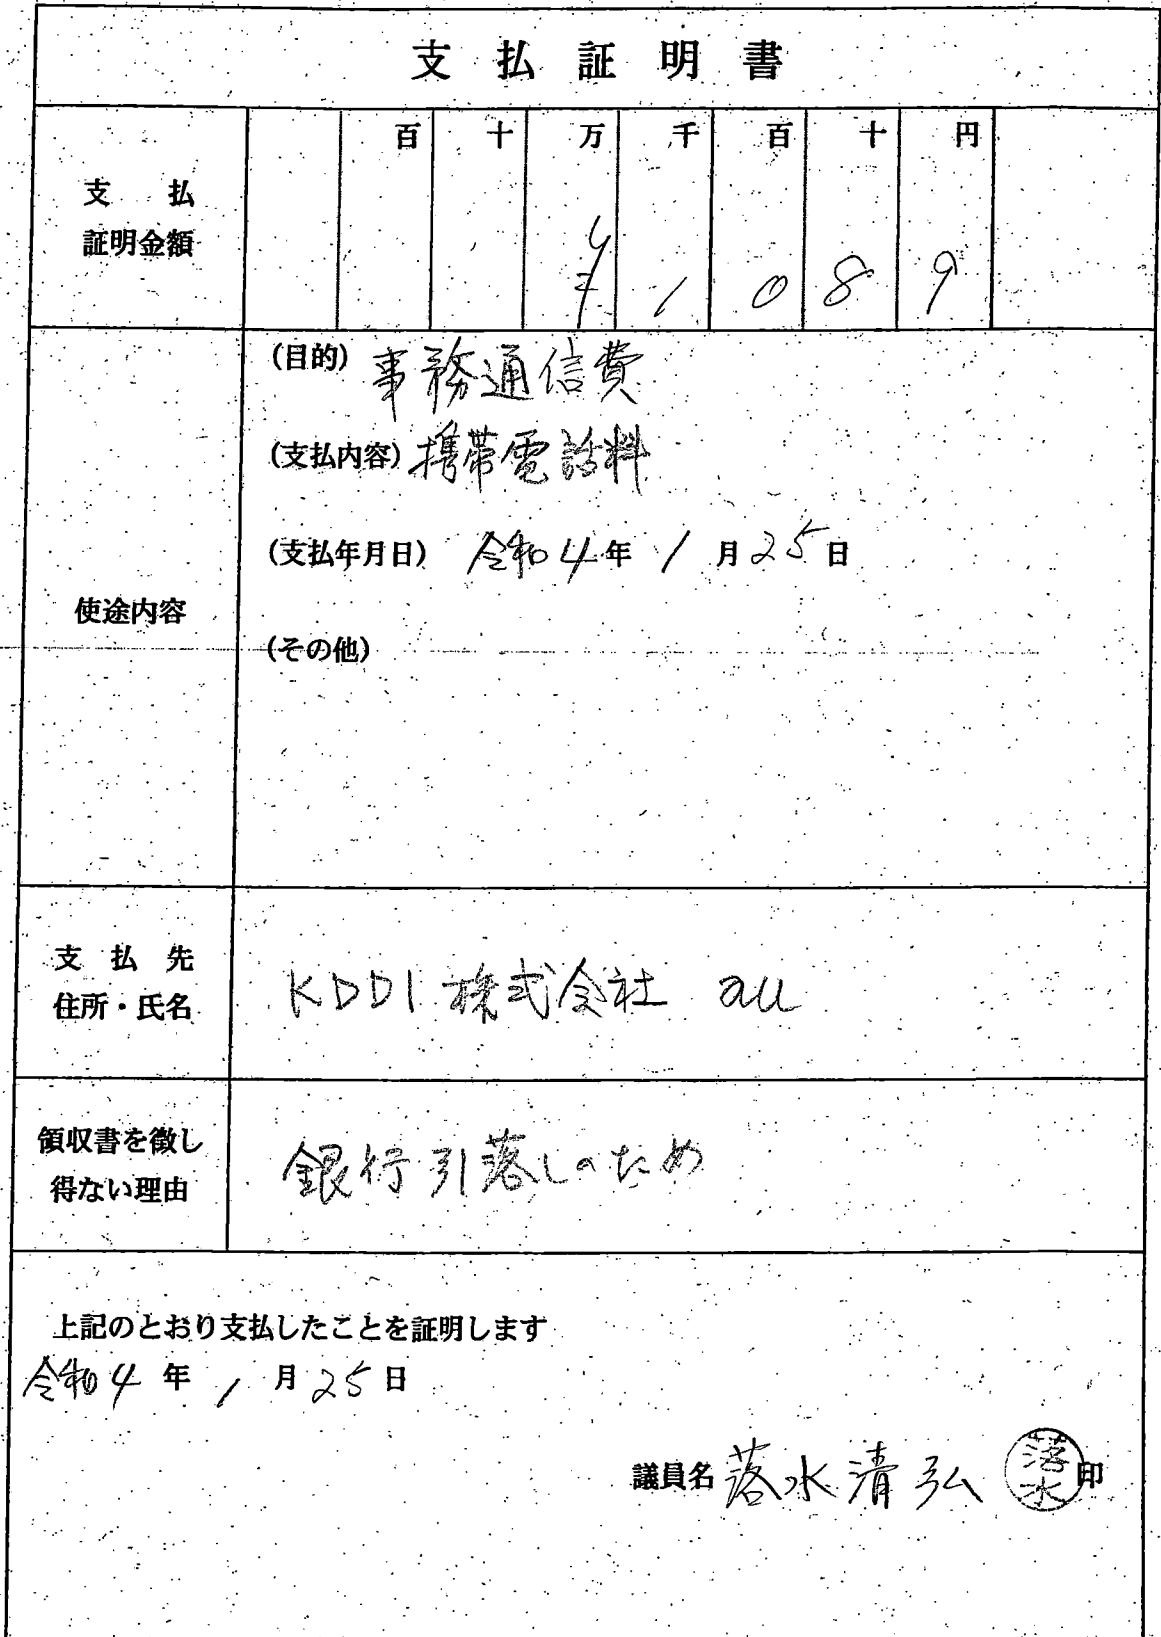 支払証明書
百 十 万 千 百 十 円
支払
証明金額
¥ 1 0 8 9
(目的) 事務通信費
(支払内容) 携帯電話料
(支払年月日) 令和4年 1月25日
使途内容
(その他)
支払先
住所・氏名
KDDI 株式会社 au
領収書を徴し
得ない理由
銀行引落しのため
上記のとおり支払したことを証明します
令和4年 1月25日
議員名 落水清弘 落水 印